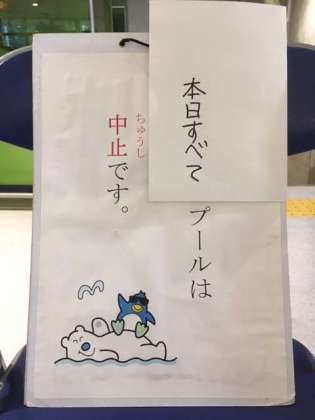 本日すべて
プールは
ちゅうし
中止です。